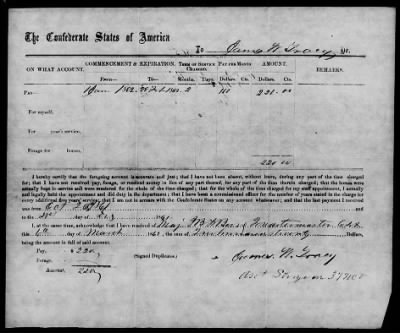 The Confederate States of America
To James W. Tracy, Dr.
ON WHAT ACCOUNT. COMMENCEMENT & EXPIRATION. TERM OF SERVICE CHARGED. PAY PER MONTH AMOUNT. REMARKS.
From— To— Months. Days. Dollars. Cts. Dollars. Cts.
Pay— 2 110 220 00
For myself.
For year's service.
Forage for horses.
220 00
I hereby certify that the foregoing account is accurate and just; that I have not been absent without leave during any part of the time charged
for; that I have not received pay, forage, or received money in lieu of any part thereof, for any part of the time therein charged; that the horses were
actually kept in service and were mustered for the whole of the time charged; that for the whole of the time charged for my staff appointment, I actually
and legally held the appointment and did duty in the department; that I have been a commissioned officer for the number of years stated in the charge for
every additional five years' service; that I am not in arrears with the Confederate States on any account whatsoever; and that the last payment I received
was from
day of
I, at the same time, acknowledge that I have received of Maj. Quartermaster
this 6th day of March Two hundred & twenty Dollars,
being the amount in full of said account.
Pay, 220
Forage,
Amount, 220
(Signed Duplicates.)
James W. Tracy
Asst Surgeon 37 N.C.